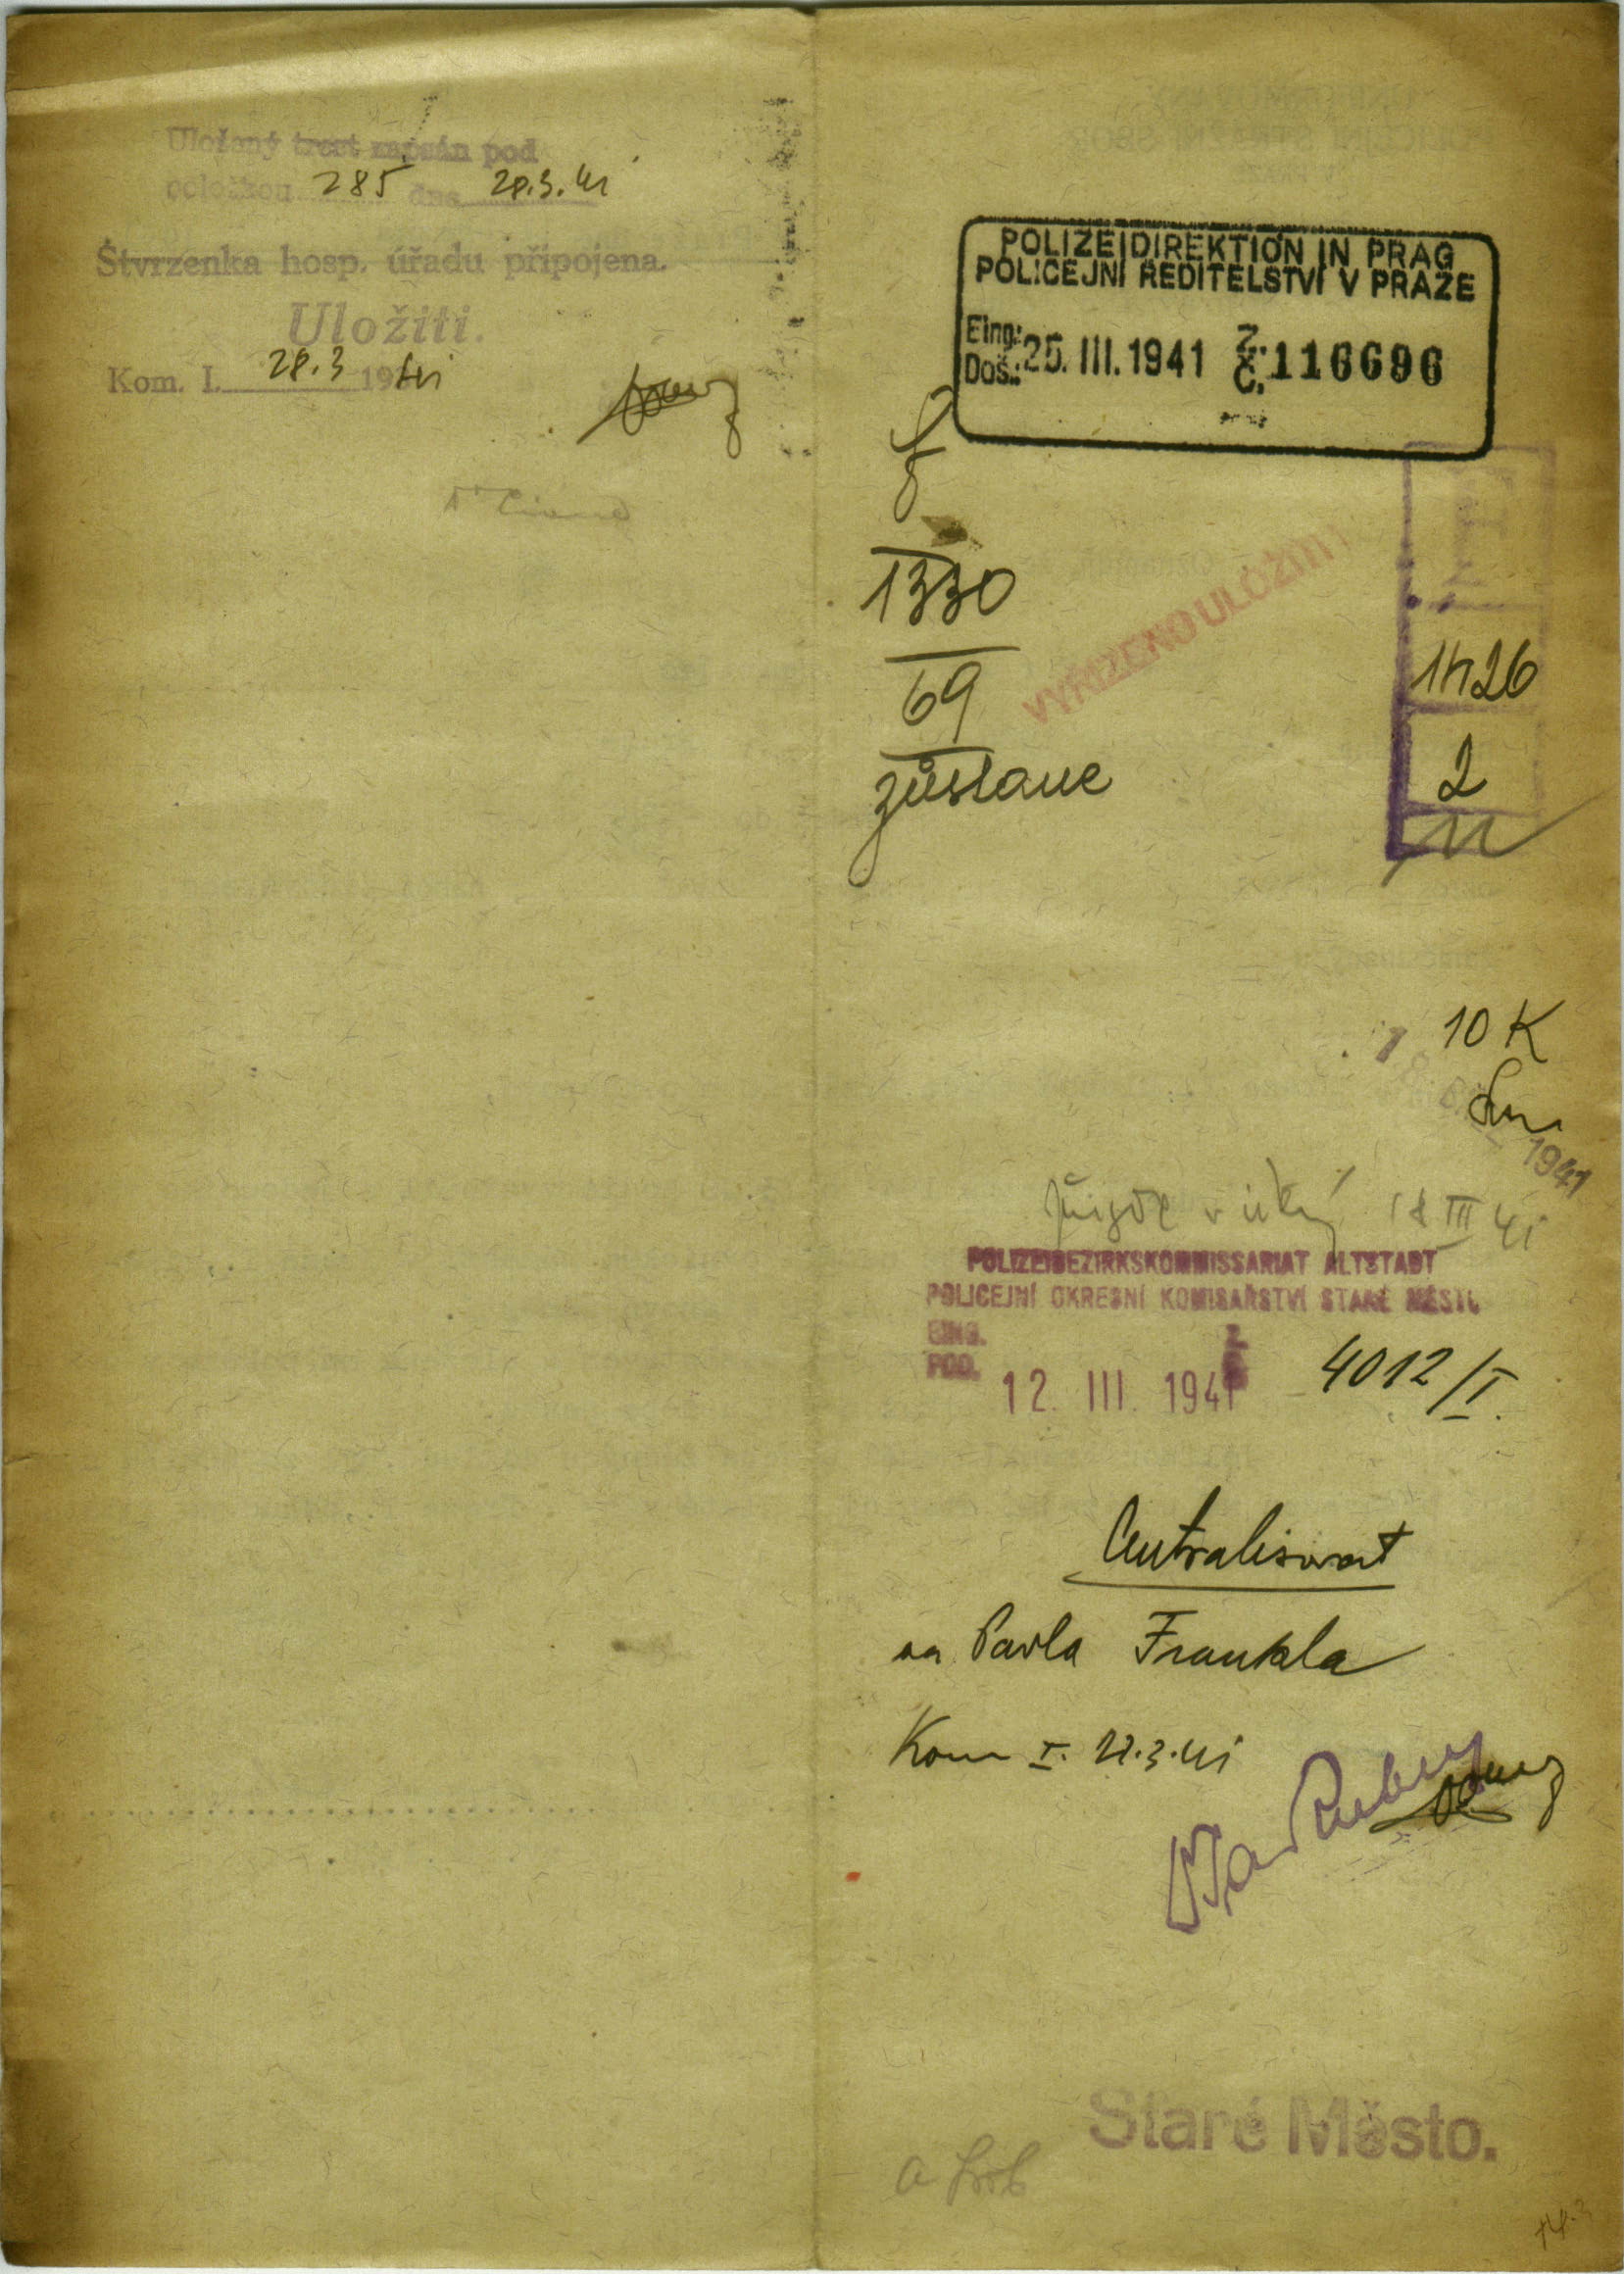 Uložený trest zapsán pod
položkou 285 dne 28.3.41
Štvrzenka hosp. úřadu připojena.
Uložiti.
Kom. I. 28.3 1941
POLIZEIDIREKTION IN PRAG
POLICEJNÍ ŘEDITELSTVÍ V PRAZE
Eing.:
Doš.: 25. III. 1941 Z.: Č. 116696
1330
69
zůstane
VYŘÍZENO ULOŽITI
1426
2
10 K
1941
18 III 41
POLIZEIBEZIRKSKOMMISSARIAT ALTSTADT
POLICEJNÍ OKRESNÍ KOMISAŘSTVÍ STARÉ MĚSTO
EING.
POD. 12. III. 1941 Z. Č. 4012/I.
Centralisovat
na Pavla Frankla
Kom I. 22.3.41
Staré Město.